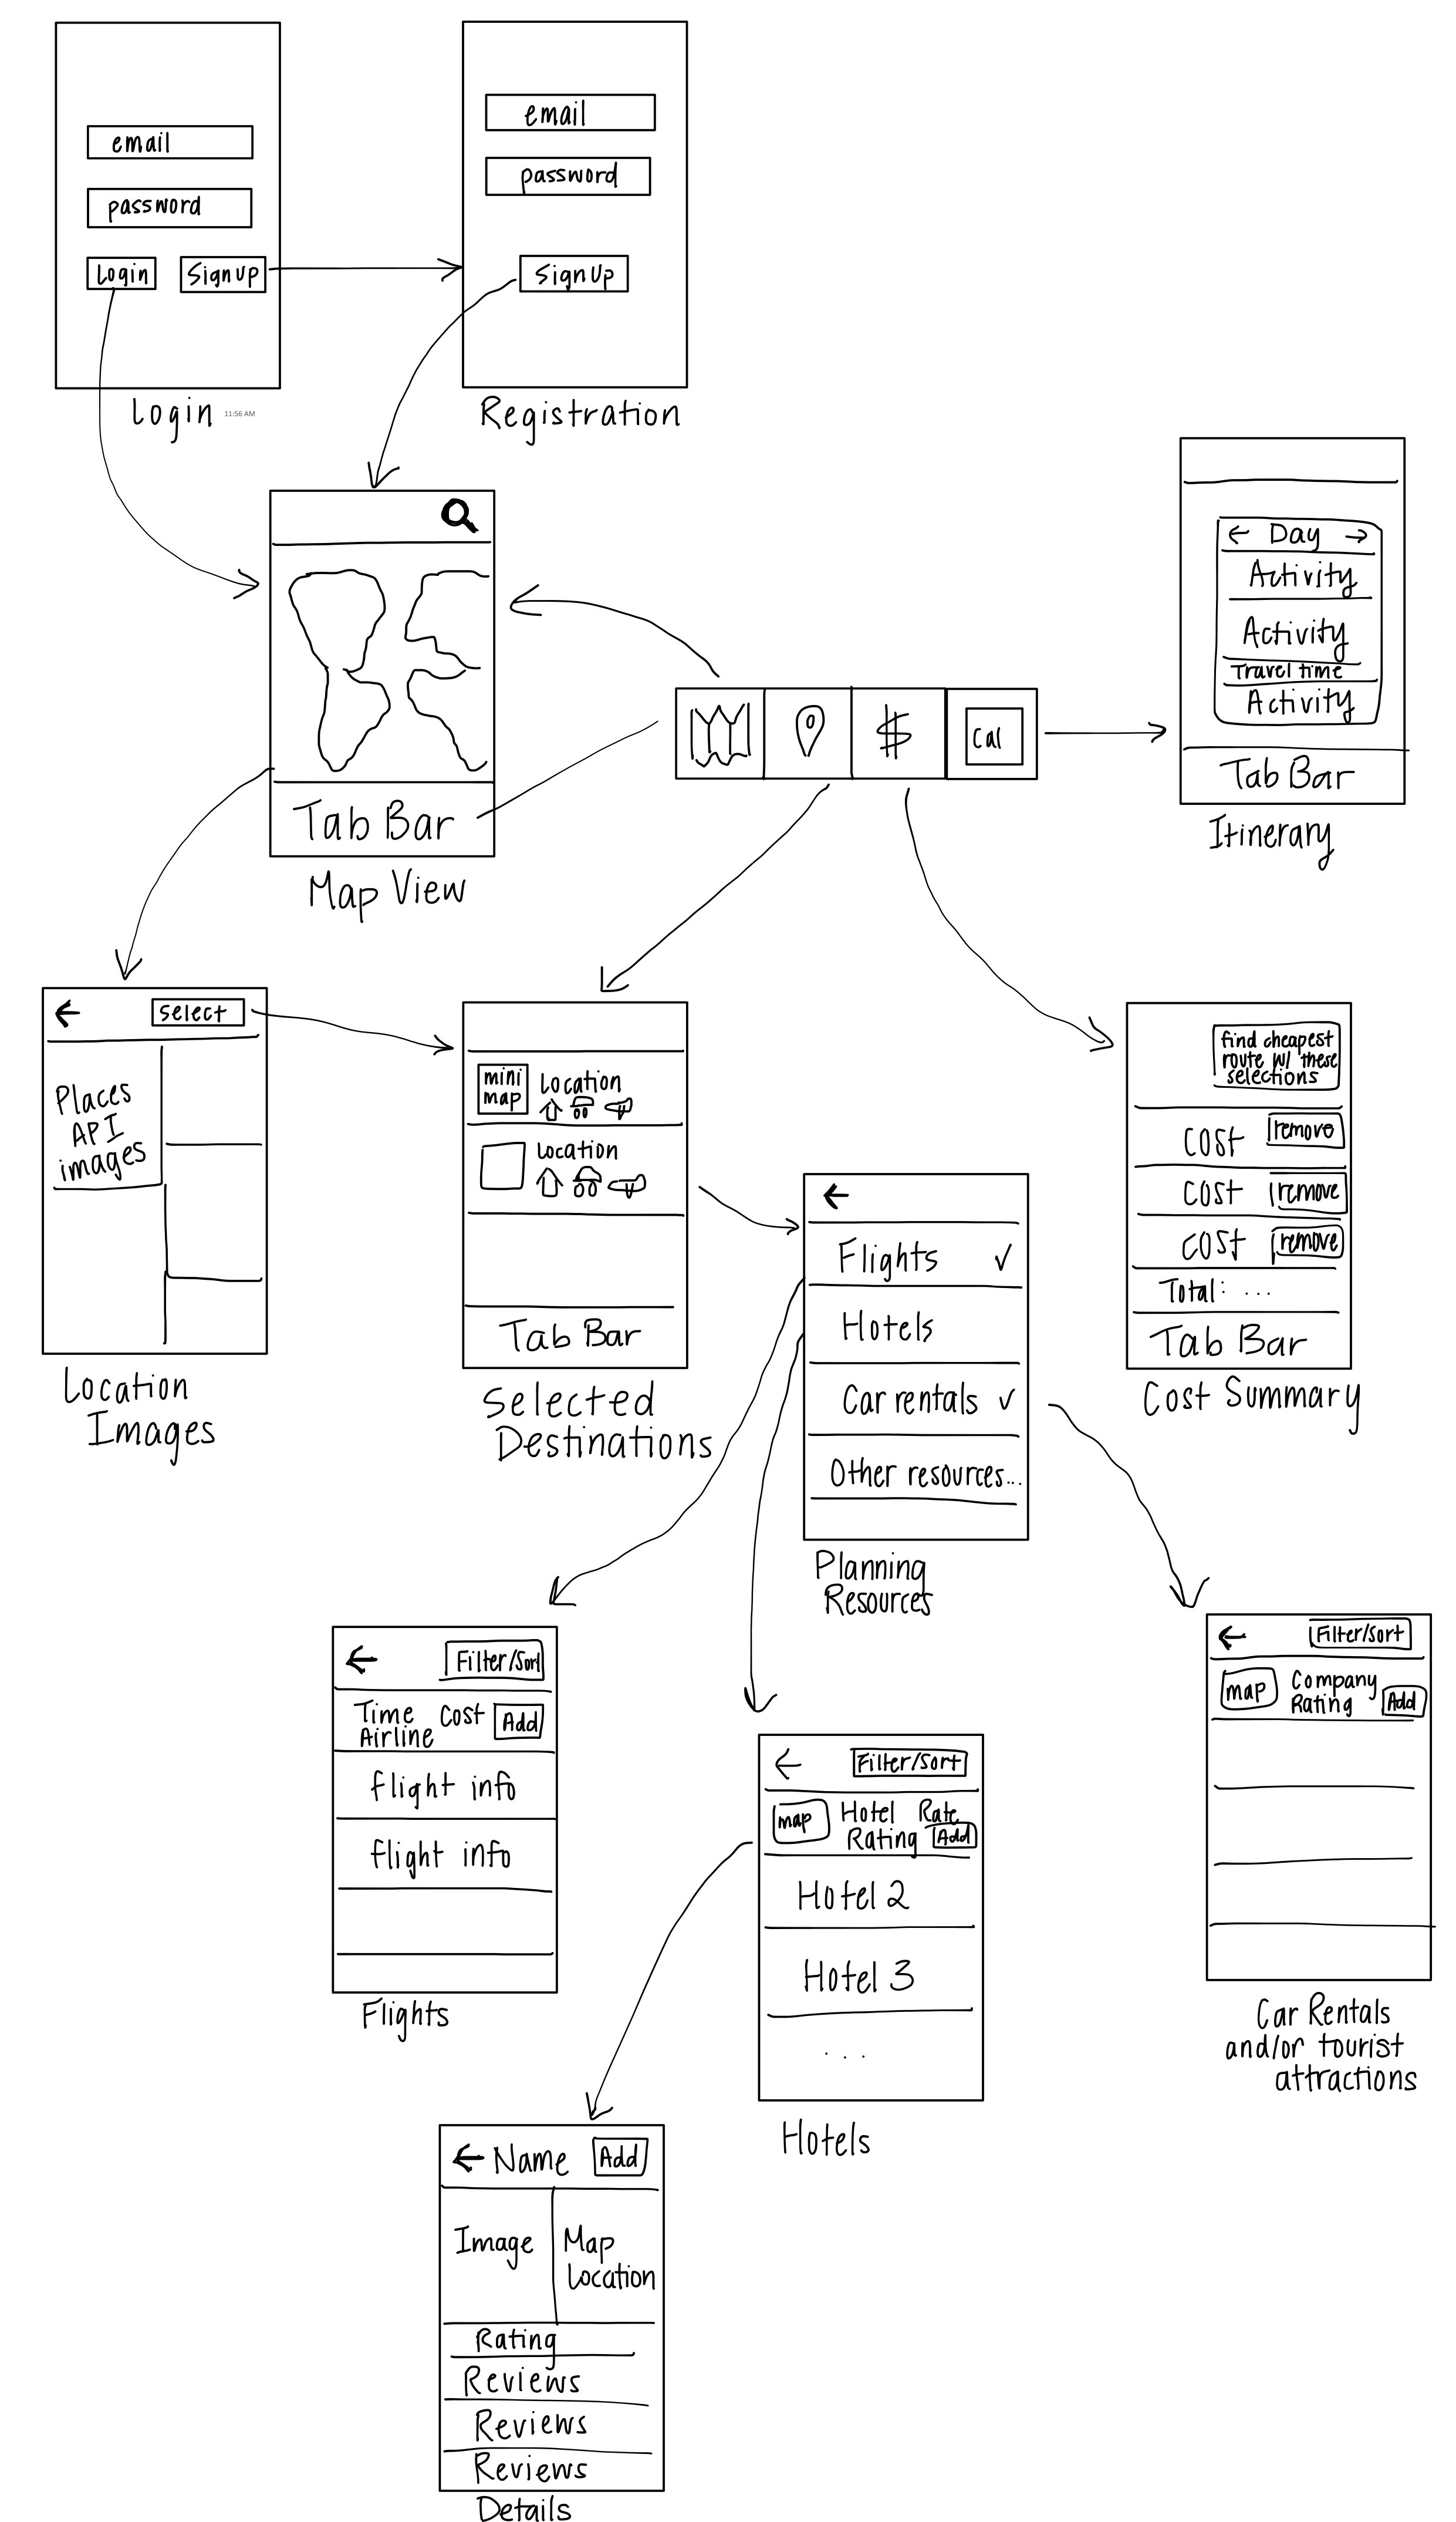 email
password
Login
Sign Up
Login
11:56 AM
email
password
Sign Up
Registration
Tab Bar
Map View
Cal
← Day →
Activity
Activity
Travel time
Activity
Tab Bar
Itinerary
← Select
Places
API
images
Location
Images
mini
map
Location
Location
Tab Bar
Selected
Destinations
←
Flights ✓
Hotels
Car rentals ✓
Other resources...
Planning
Resources
find cheapest
route w/ these
selections
cost remove
cost remove
cost remove
Total: ...
Tab Bar
Cost Summary
← Filter/Sort
Time
Airline
Cost
Add
flight info
flight info
Flights
← Filter/Sort
map
Hotel Rate
Rating Add
Hotel 2
Hotel 3
...
Hotels
← Filter/Sort
map
Company
Rating
Add
Car Rentals
and/or tourist
attractions
← Name Add
Image
Map
Location
Rating
Reviews
Reviews
Reviews
Details